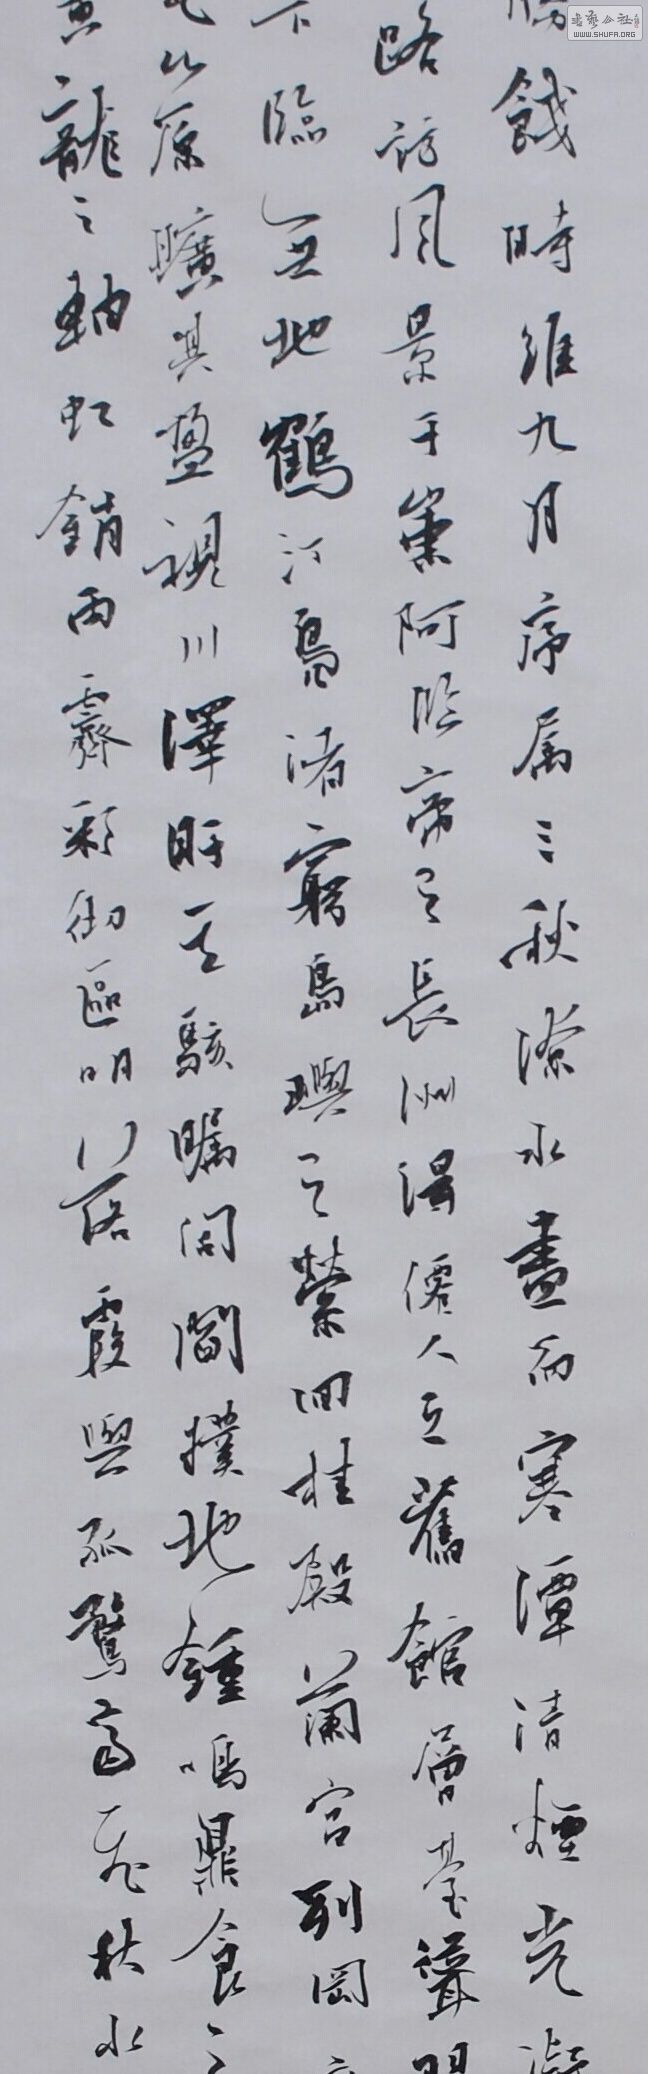 勝餞時維九月序属三秋潦水盡而寒潭清煙光凝
路訪風景于崇阿臨帝之長洲得僊人之舊館層臺聳
下臨無地鶴汀鳧渚窮島嶼之縈洄桂殿蘭宮列岡
山原曠其盈視川澤盱其駭矚闾閻撲地鍾鳴鼎食之
黄龍之軸虹銷雨霽彩彻區明落霞與孤鶩齊飛秋水
書藝公社
WWW.SHUFA.ORG